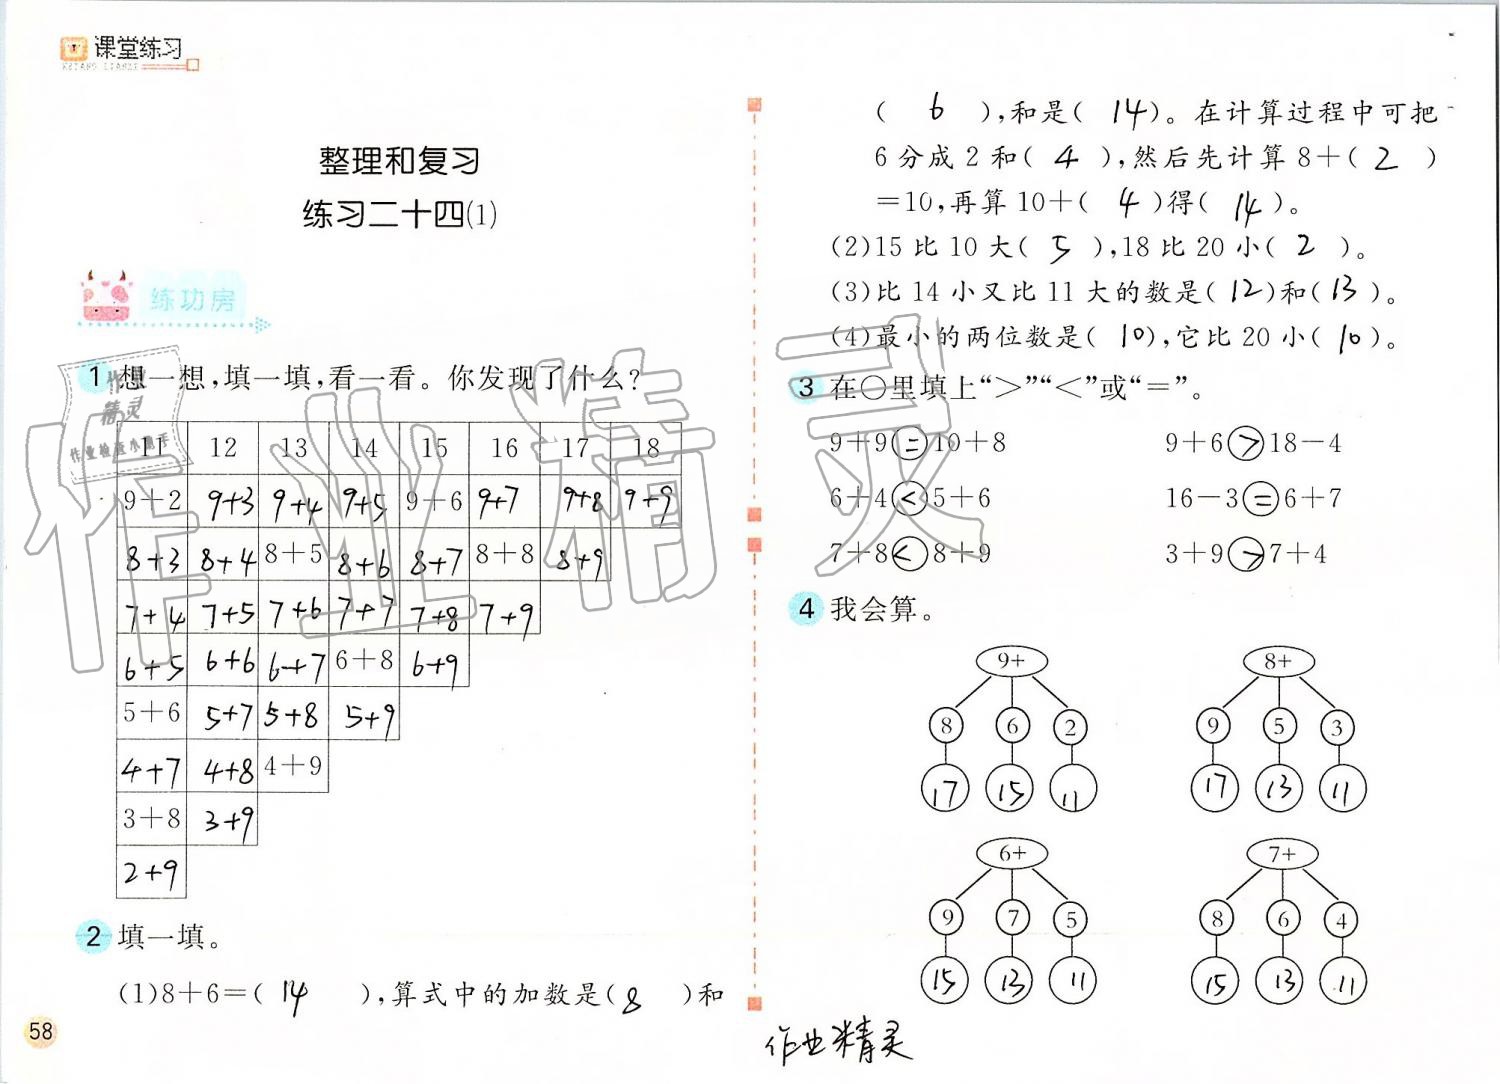 课堂练习
KETANG LIANXI
整理和复习
练习二十四(1)
练功房
1 想一想,填一填,看一看。你发现了什么?
11 12 13 14 15 16 17 18
9+2 9+3 9+4 9+5 9+6 9+7 9+8 9+9
8+3 8+4 8+5 8+6 8+7 8+8 8+9
7+4 7+5 7+6 7+7 7+8 7+9
6+5 6+6 6+7 6+8 6+9
5+6 5+7 5+8 5+9
4+7 4+8 4+9
3+8 3+9
2+9
2 填一填。
(1)8+6=( 14 ),算式中的加数是( 8 )和
58
( 6 ),和是( 14 )。在计算过程中可把
6分成2和( 4 ),然后先计算8+( 2 )
=10,再算10+( 4 )得( 14 )。
(2)15比10大( 5 ),18比20小( 2 )。
(3)比14小又比11大的数是( 12 )和( 13 )。
(4)最小的两位数是( 10 ),它比20小( 10 )。
3 在○里填上“>”“<”或“=”。
9+9=10+8 9+6>18-4
6+4<5+6 16-3=6+7
7+8<8+9 3+9>7+4
4 我会算。
9+ 8+
8 6 2 9 5 3
17 15 11 17 13 11
6+ 7+
9 7 5 8 6 4
15 13 11 15 13 11
作业精灵
作业精灵
作业精灵
作业检查小助手